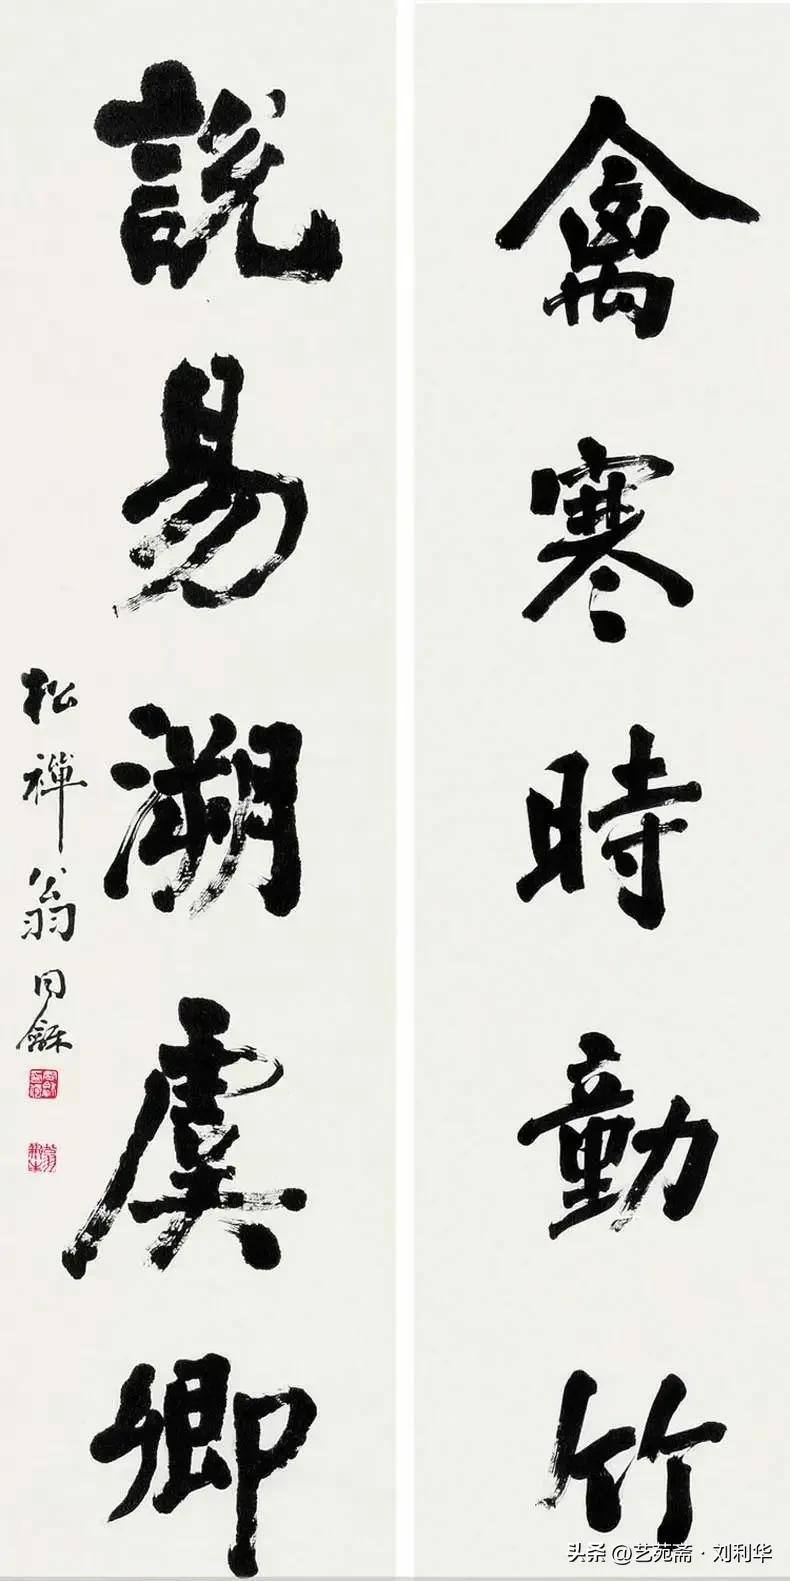 禽寒時動竹
說易溯虞卿
松禪翁同龢
头条 @艺苑斋·刘利华